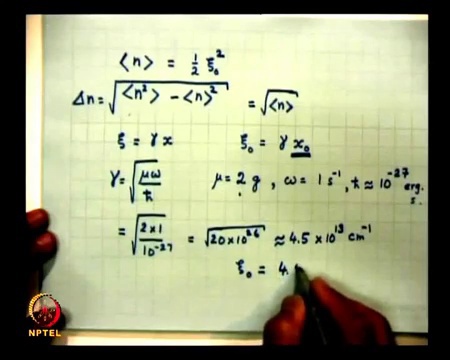 ⟨n⟩ = 1/2 ξ₀²
Δn = √(⟨n²⟩ − ⟨n⟩²) = √⟨n⟩
ξ = γ x    ξ₀ = γ x₀
γ = √(μω/ħ)    μ = 2 g , ω = 1 s⁻¹, ħ ≈ 10⁻²⁷ erg. s.
= √(2×1/10⁻²⁷) = √(20×10²⁶) ≈ 4.5 × 10¹³ cm⁻¹
ξ₀ = 4.
NPTEL